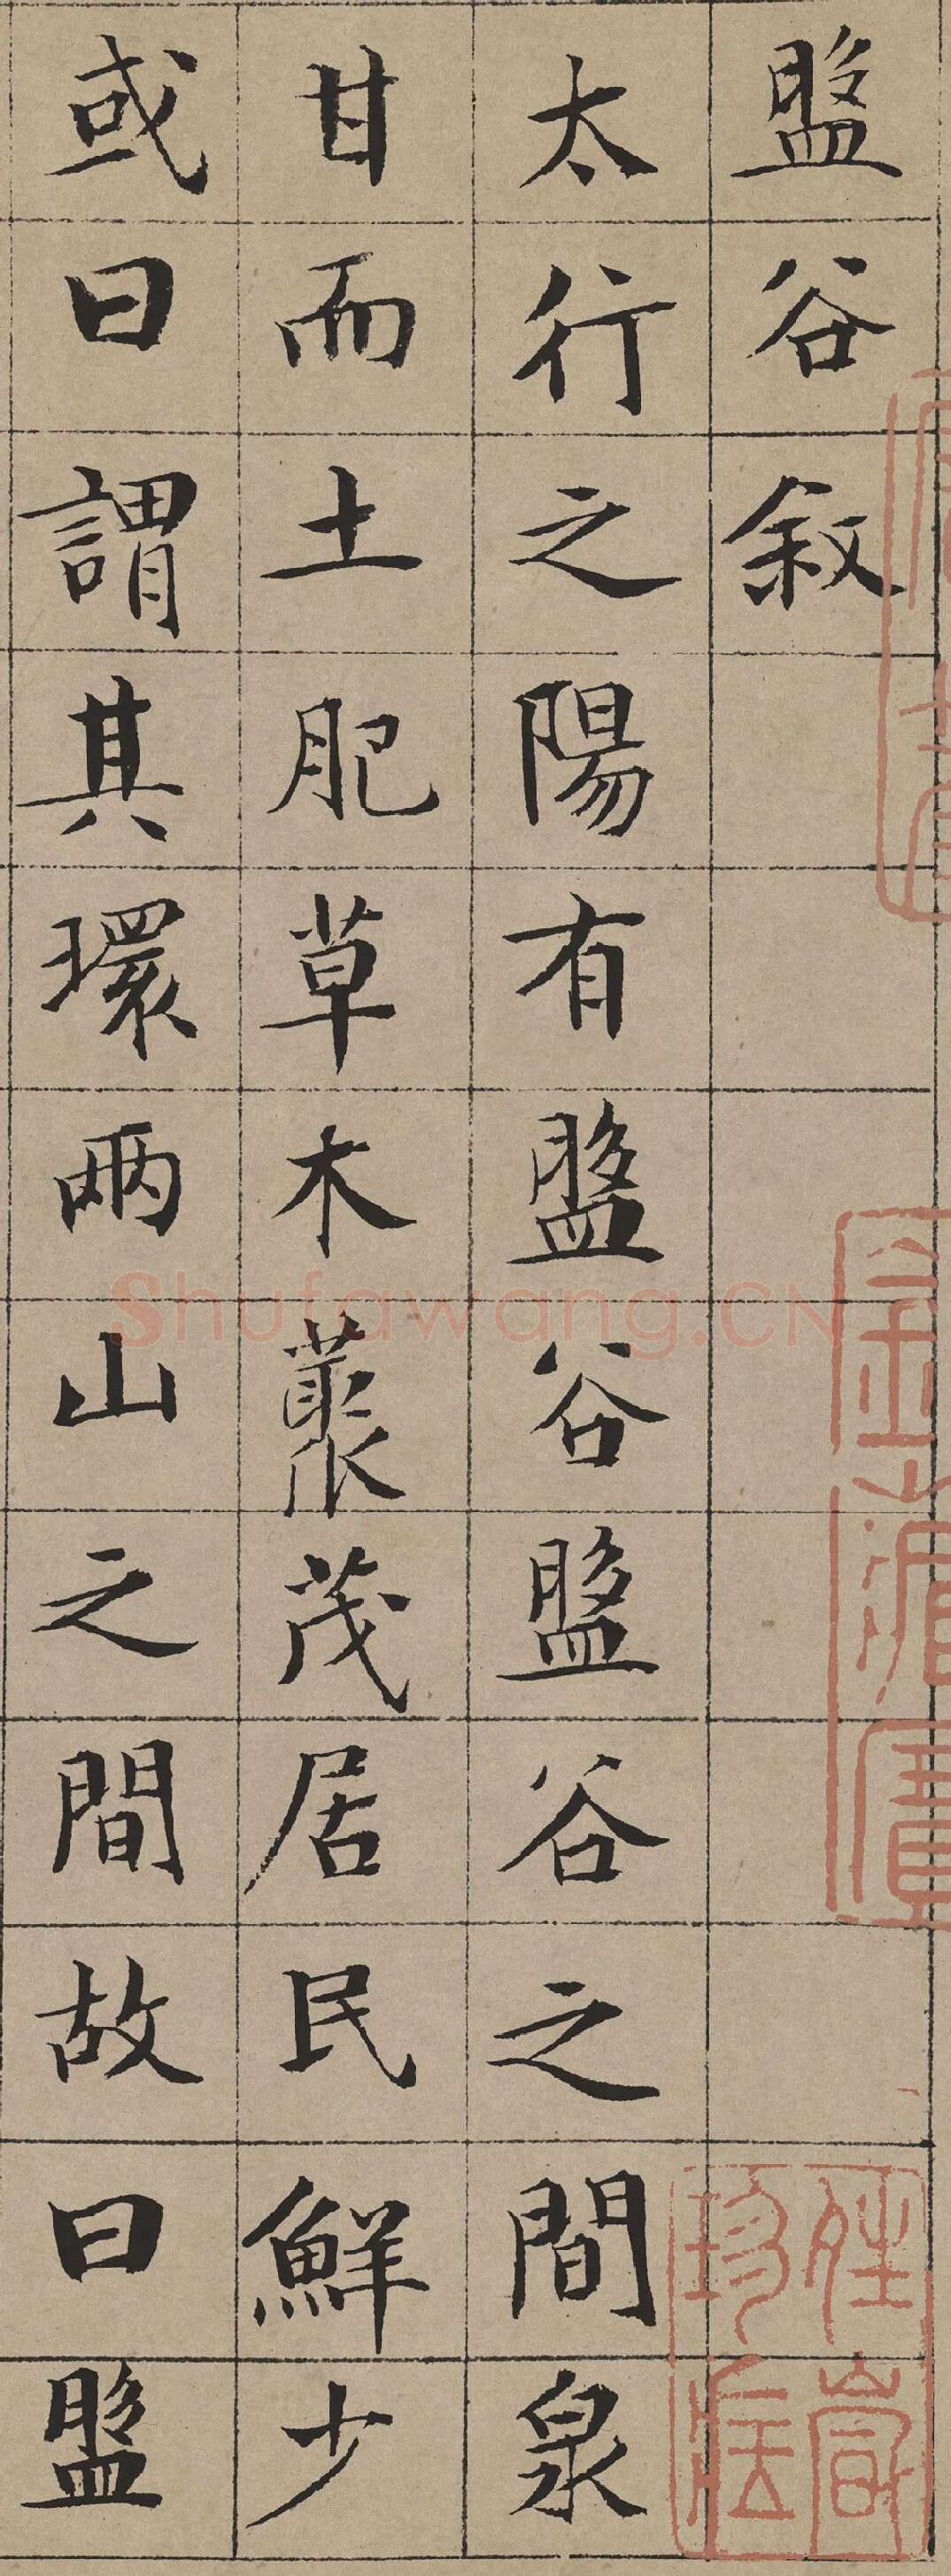 盤谷敘
太行之陽有盤谷盤谷之間泉
甘而土肥草木藂茂居民鮮少
或曰謂其環兩山之間故曰盤
shufawang.CN